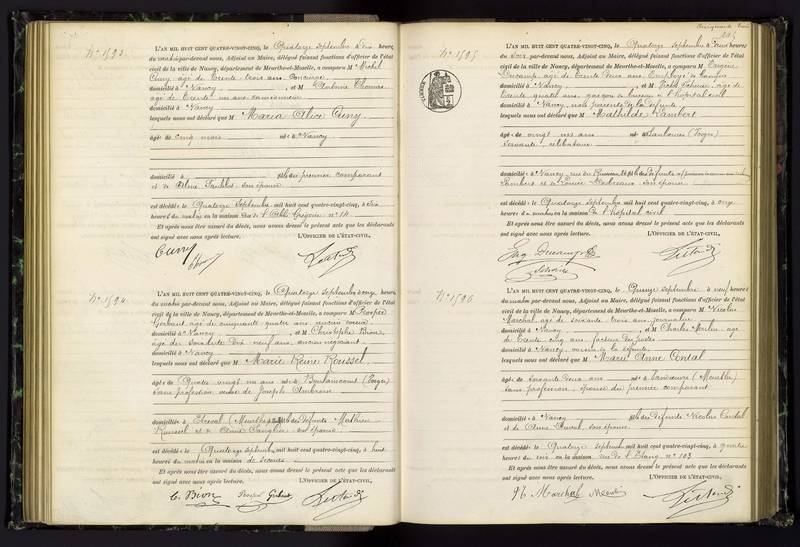 N° 1593
L'AN MIL HUIT CENT QUATRE-VINGT-CINQ, le Quatorze septembre à dix heures
du matin par-devant nous, Adjoint au Maire, délégué faisant fonctions d'officier de l'état
civil de la ville de Nancy, département de Meurthe-et-Moselle, a comparu M Michel
Cuny âgé de trente trois ans Concierge
domicilié à Nancy, et M Antoine Thomas
âgé de trente un ans
domicilié à Nancy
lesquels nous ont déclaré que M Maria Alice Cuny
âgé de cinq mois né à Nancy
domicilié à fille du premier comparant
et de son épouse
est décédé le Quatorze Septembre mil huit cent quatre-vingt-cinq, à dix
heures du matin en la maison Rue de l'Abbé Grégoire n° 14
Et après nous être assuré du décès, nous avons dressé le présent acte que les déclarants
ont signé avec nous après lecture. L'OFFICIER DE L'ÉTAT-CIVIL,
Cuny
N° 1594
L'AN MIL HUIT CENT QUATRE-VINGT-CINQ, le Quatorze septembre à onze heures
du matin par-devant nous, Adjoint au Maire, délégué faisant fonctions d'officier de l'état
civil de la ville de Nancy, département de Meurthe-et-Moselle, a comparu M Prosper
âgé de cinquante quatre ans
domicilié à Nancy, et M Christophe Bion
âgé de soixante dix neuf ans, ancien négociant
domicilié à Nancy
lesquels nous ont déclaré que M Marie Reine Roussel
âgée de Quatre vingt un ans née à (Vosges)
sans profession, veuve de Joseph
domiciliée à (Meurthe) fille des défunts Mathieu
Roussel et de son épouse
est décédé le Quatorze Septembre mil huit cent quatre-vingt-cinq, à huit
heures du matin en la maison de secours
Et après nous être assuré du décès, nous avons dressé le présent acte que les déclarants
ont signé avec nous après lecture. L'OFFICIER DE L'ÉTAT-CIVIL,
C. Bion
N° 1595
L'AN MIL HUIT CENT QUATRE-VINGT-CINQ, le Quatorze septembre à deux heures
du soir, par-devant nous, Adjoint au Maire, délégué faisant fonctions d'officier de l'état
civil de la ville de Nancy, département de Meurthe-et-Moselle, a comparu M Eugène
Ducamp âgé de trente deux ans, Employé
domicilié à Nancy, et M âgé de
trente quatre ans, garçon de bureau à l'hôpital civil
domicilié à Nancy, non parents de la défunte
lesquels nous ont déclaré que M Mathilde Lambert
âgée de vingt un ans née à (Vosges)
servante, célibataire
domiciliée à Nancy, rue fille des défunts
Lambert et de Louise son épouse
est décédé le Quatorze Septembre mil huit cent quatre-vingt-cinq, à onze
heures du matin en la maison de l'hôpital civil
Et après nous être assuré du décès, nous avons dressé le présent acte que les déclarants
ont signé avec nous après lecture. L'OFFICIER DE L'ÉTAT-CIVIL,
Eug Ducamp
N° 1596
L'AN MIL HUIT CENT QUATRE-VINGT-CINQ, le Quinze septembre à neuf heures
du matin par-devant nous, Adjoint au Maire, délégué faisant fonctions d'officier de l'état
civil de la ville de Nancy, département de Meurthe-et-Moselle, a comparu M Nicolas
Marchal âgé de soixante trois ans, journalier
domicilié à Nancy, et M Charles âgé
de trente cinq ans, facteur des postes
domicilié à Nancy, voisin de la défunte
lesquels nous ont déclaré que M Marie Anne Contal
âgée de soixante deux ans née à (Meurthe)
sans profession, épouse du premier comparant
domiciliée à Nancy fille des défunts Nicolas Contal
et de Anne son épouse
est décédé le Quatorze Septembre mil huit cent quatre-vingt-cinq, à quatre
heures du soir en la maison rue de l'Etang n° 103
Et après nous être assuré du décès, nous avons dressé le présent acte que les déclarants
ont signé avec nous après lecture. L'OFFICIER DE L'ÉTAT-CIVIL,
Marchal